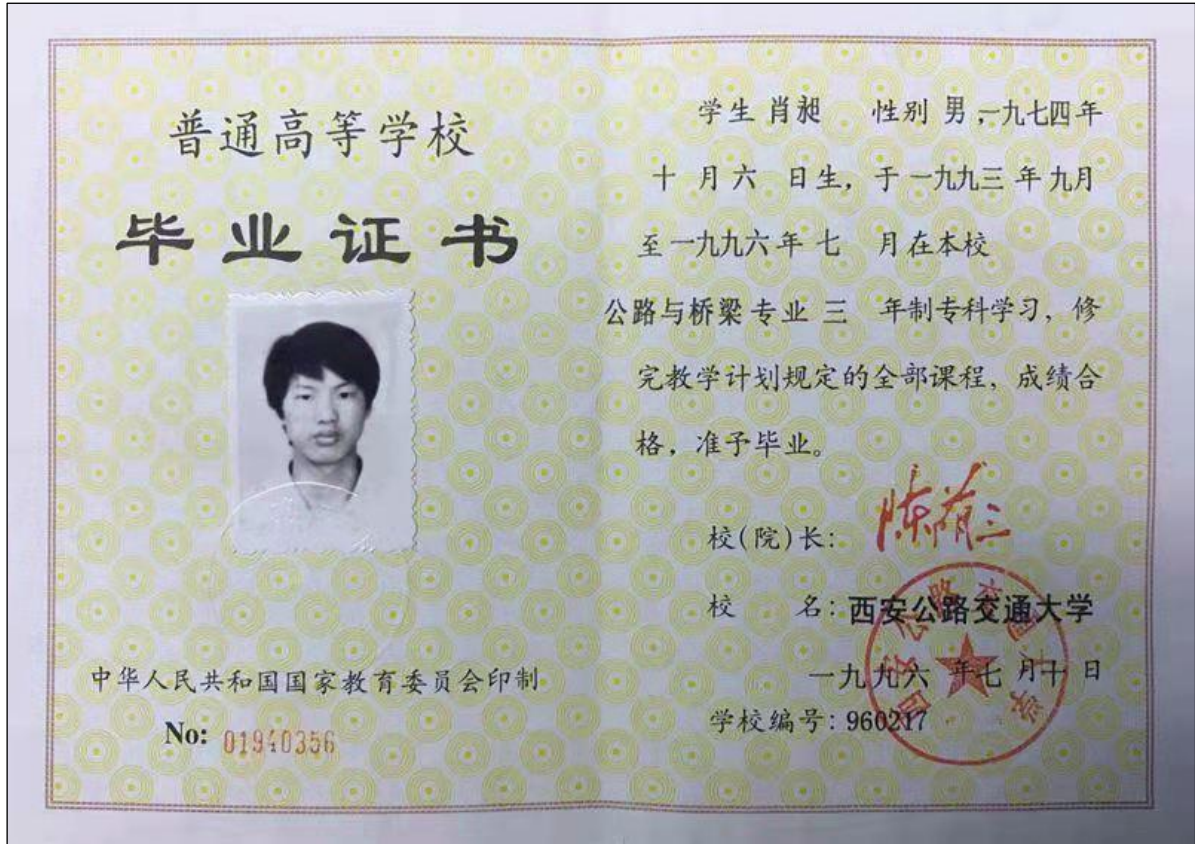 普通高等学校
毕业证书
中华人民共和国国家教育委员会印制
No: 01940356
学生 肖昶 性别 男，一九七四年
十 月 六 日生，于 一九九三 年 九月
至 一九九六 年 七 月在本校
公路与桥梁 专业 三 年制专科学习，修
完教学计划规定的全部课程，成绩合
格，准予毕业。
校(院)长: 陈荫三
校 名: 西安公路交通大学
一九九六 年七 月十 日
学校编号: 960217
西安公路交通大学